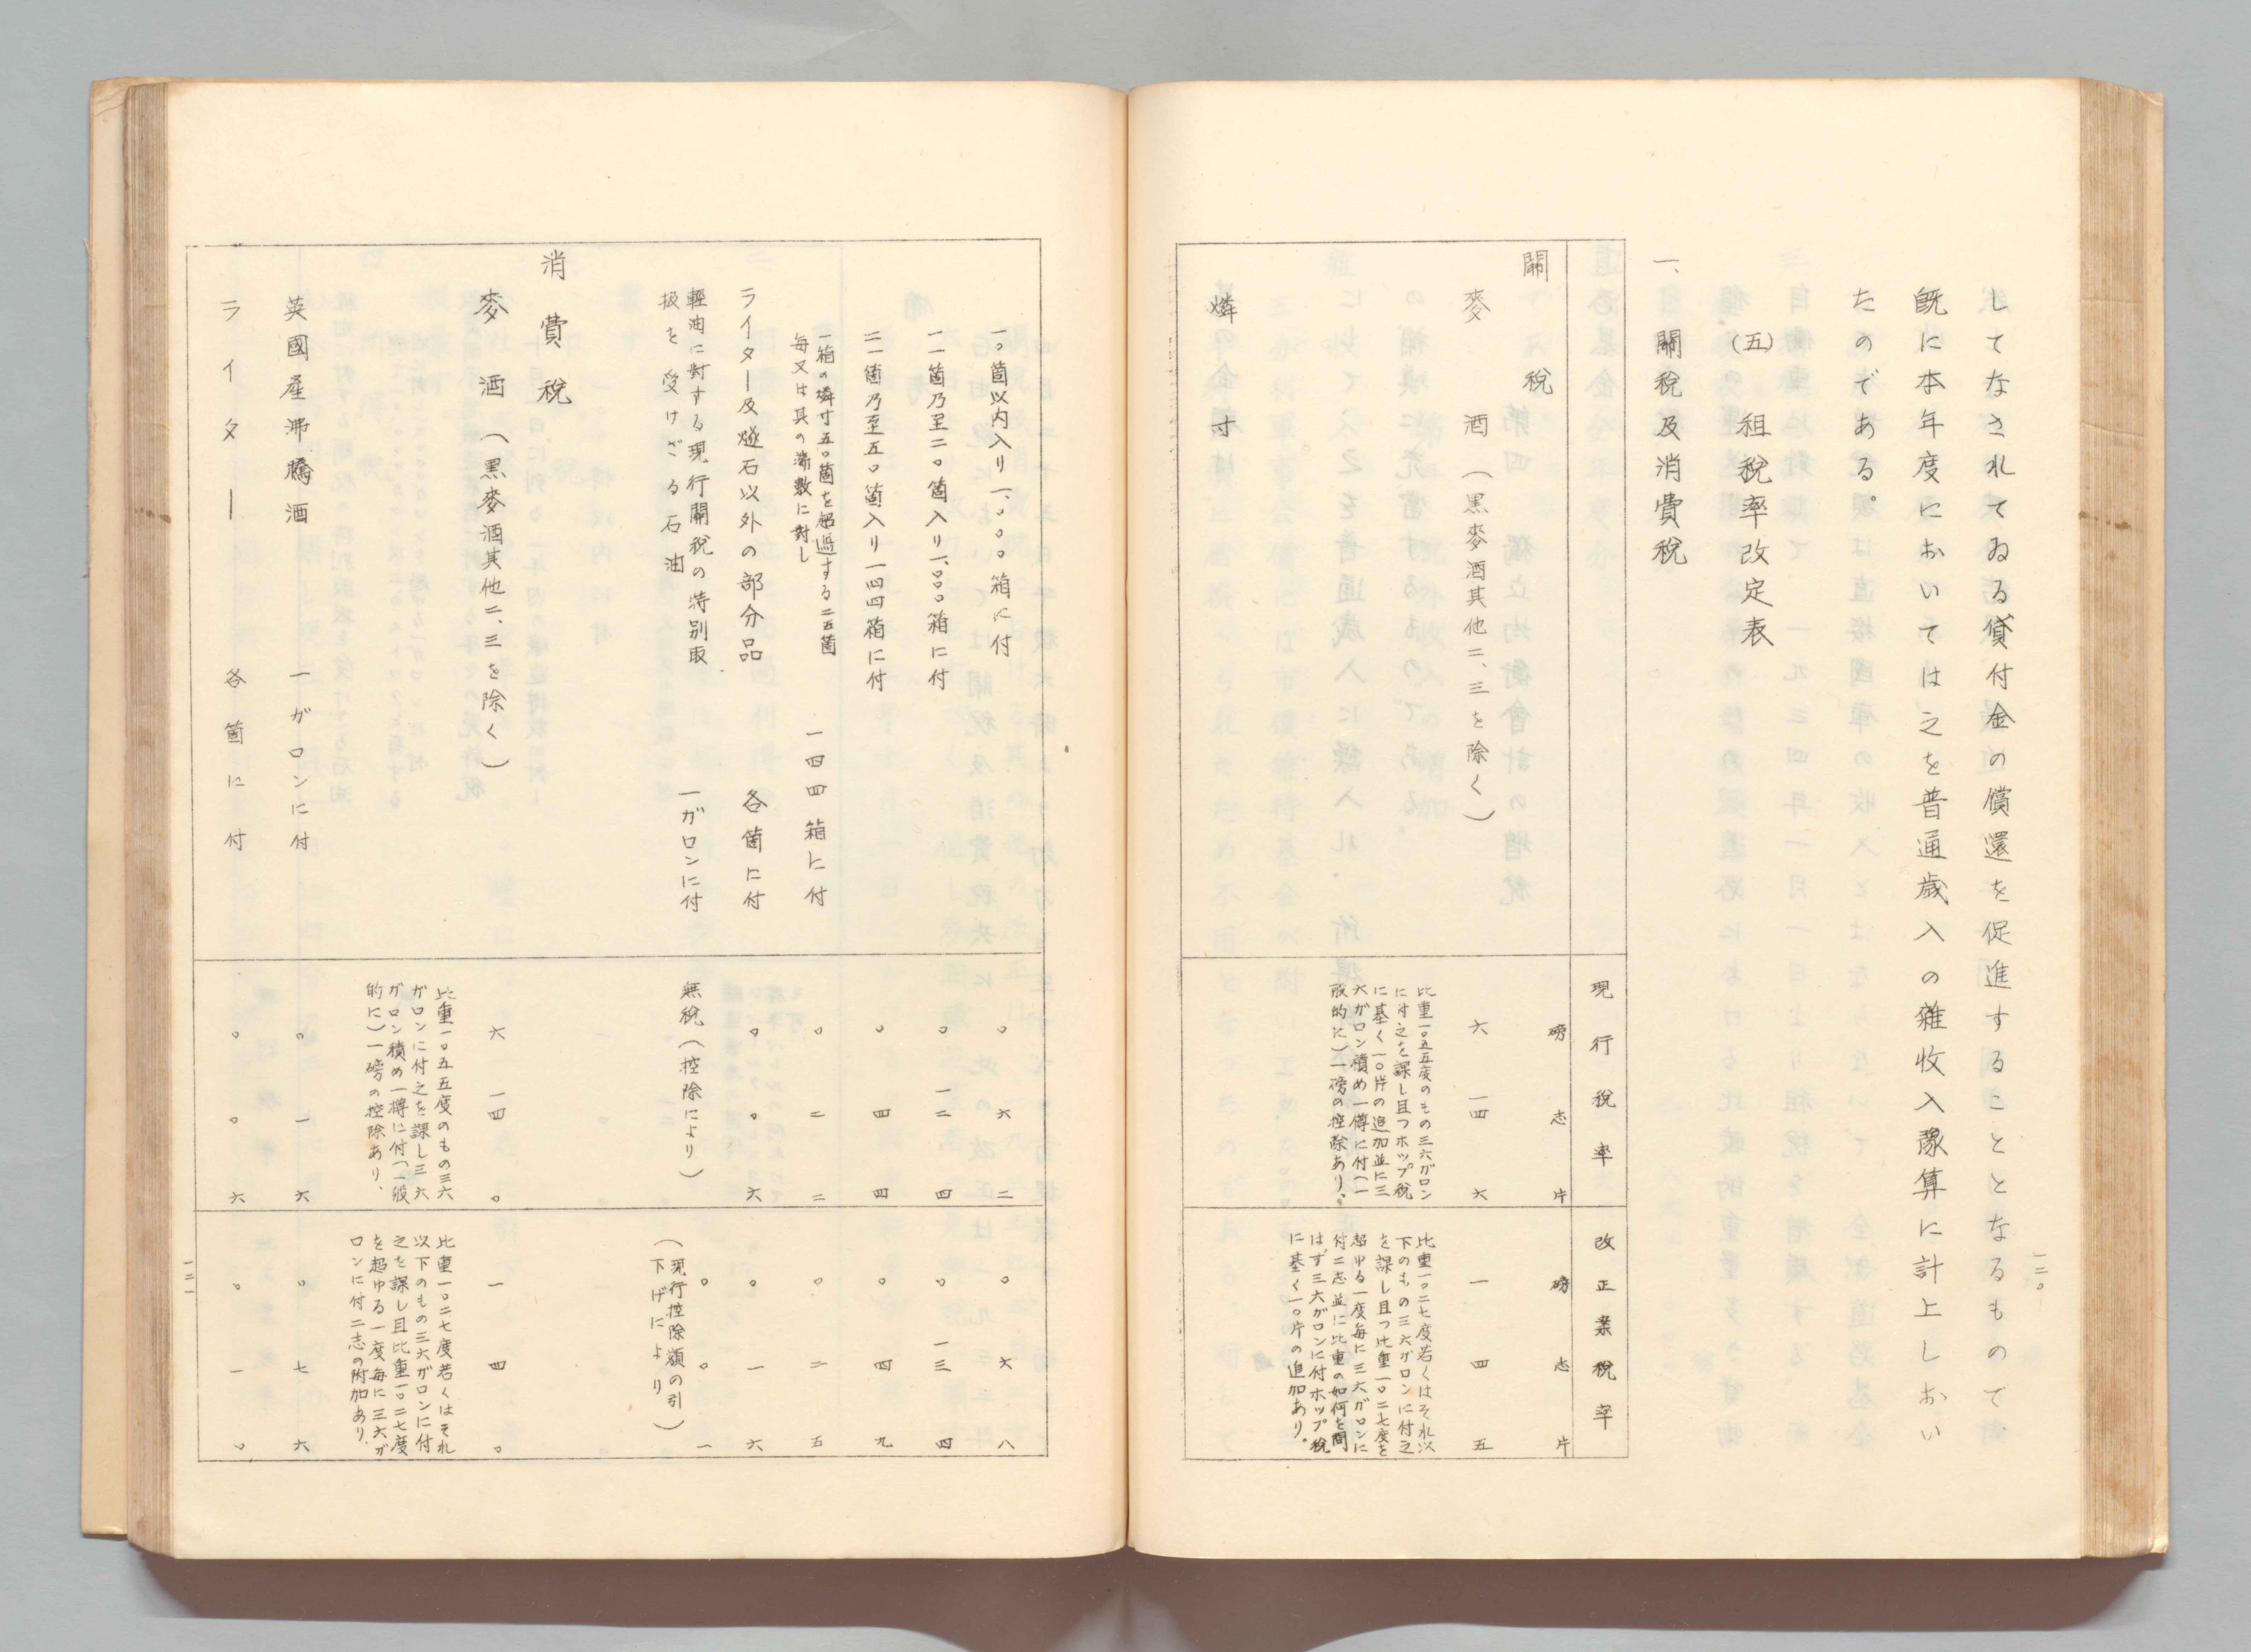 してなされてゐる貸付金の償還を促進することとなるもので
既に本年度においては之を普通歳入の雑收入豫算に計上しおい
たのである。
(五) 租税率改定表
一、關税及消費税
現行税率
改正業税率
關税
磅 志 片
磅 志 片
麥酒(黒麥酒其他二、三を除く)
六 一四 六
一 四 五
比重一〇五五度のもの三六ガロン
に付之を課し且つホップ税
に基く一〇片の追加並に三
六ガロン積め一樽に付(一
般的に)一磅の控除あり、
比重一〇二七度若くはそれ以
下のもの三六ガロンに付之
を課し且つ比重一〇二七度を
超ゆる一度毎に三六ガロンに
付二志並に比重の如何を問
はず三六ガロンに付ホップ税
に基く一〇片の追加あり。
燐寸
一二〇
一〇箇以内入り一、〇〇〇箱に付
〇 六 二
〇 六 八
一一箇乃至二〇箇入り一、〇〇〇箱に付
〇 一二 四
〇 一三 四
二一箇乃至五〇箇入り一四四箱に付
〇 四 四
〇 四 九
一箱の燐寸五〇箇を超過する二五箇
毎又は其の端数に對し
一四四箱に付
〇 二 二
〇 二 五
ライター及燧石以外の部分品
各箇に付
〇 〇 六
〇 一 六
輕油に對する現行關税の特別取
扱を受けざる石油
一ガロンに付
無税(控除により)
〇 〇 一
(現行控除額の引
下げにより)
消費税
麥酒(黒麥酒其他二、三を除く)
六 一四 〇
一 四 〇
比重一〇五五度のもの三六
ガロンに付之を課し三六
ガロン積め一樽に付(一般
的に)一磅の控除あり、
比重一〇二七度若くはそれ
以下のもの三六ガロンに付
之を課し且比重一〇二七度
を超ゆる一度毎に三六ガ
ロンに付二志の附加あり、
英國産沸騰酒
一ガロンに付
〇 一 六
〇 七 六
ライター
各箇に付
〇 〇 六
〇 一 〇
一二一